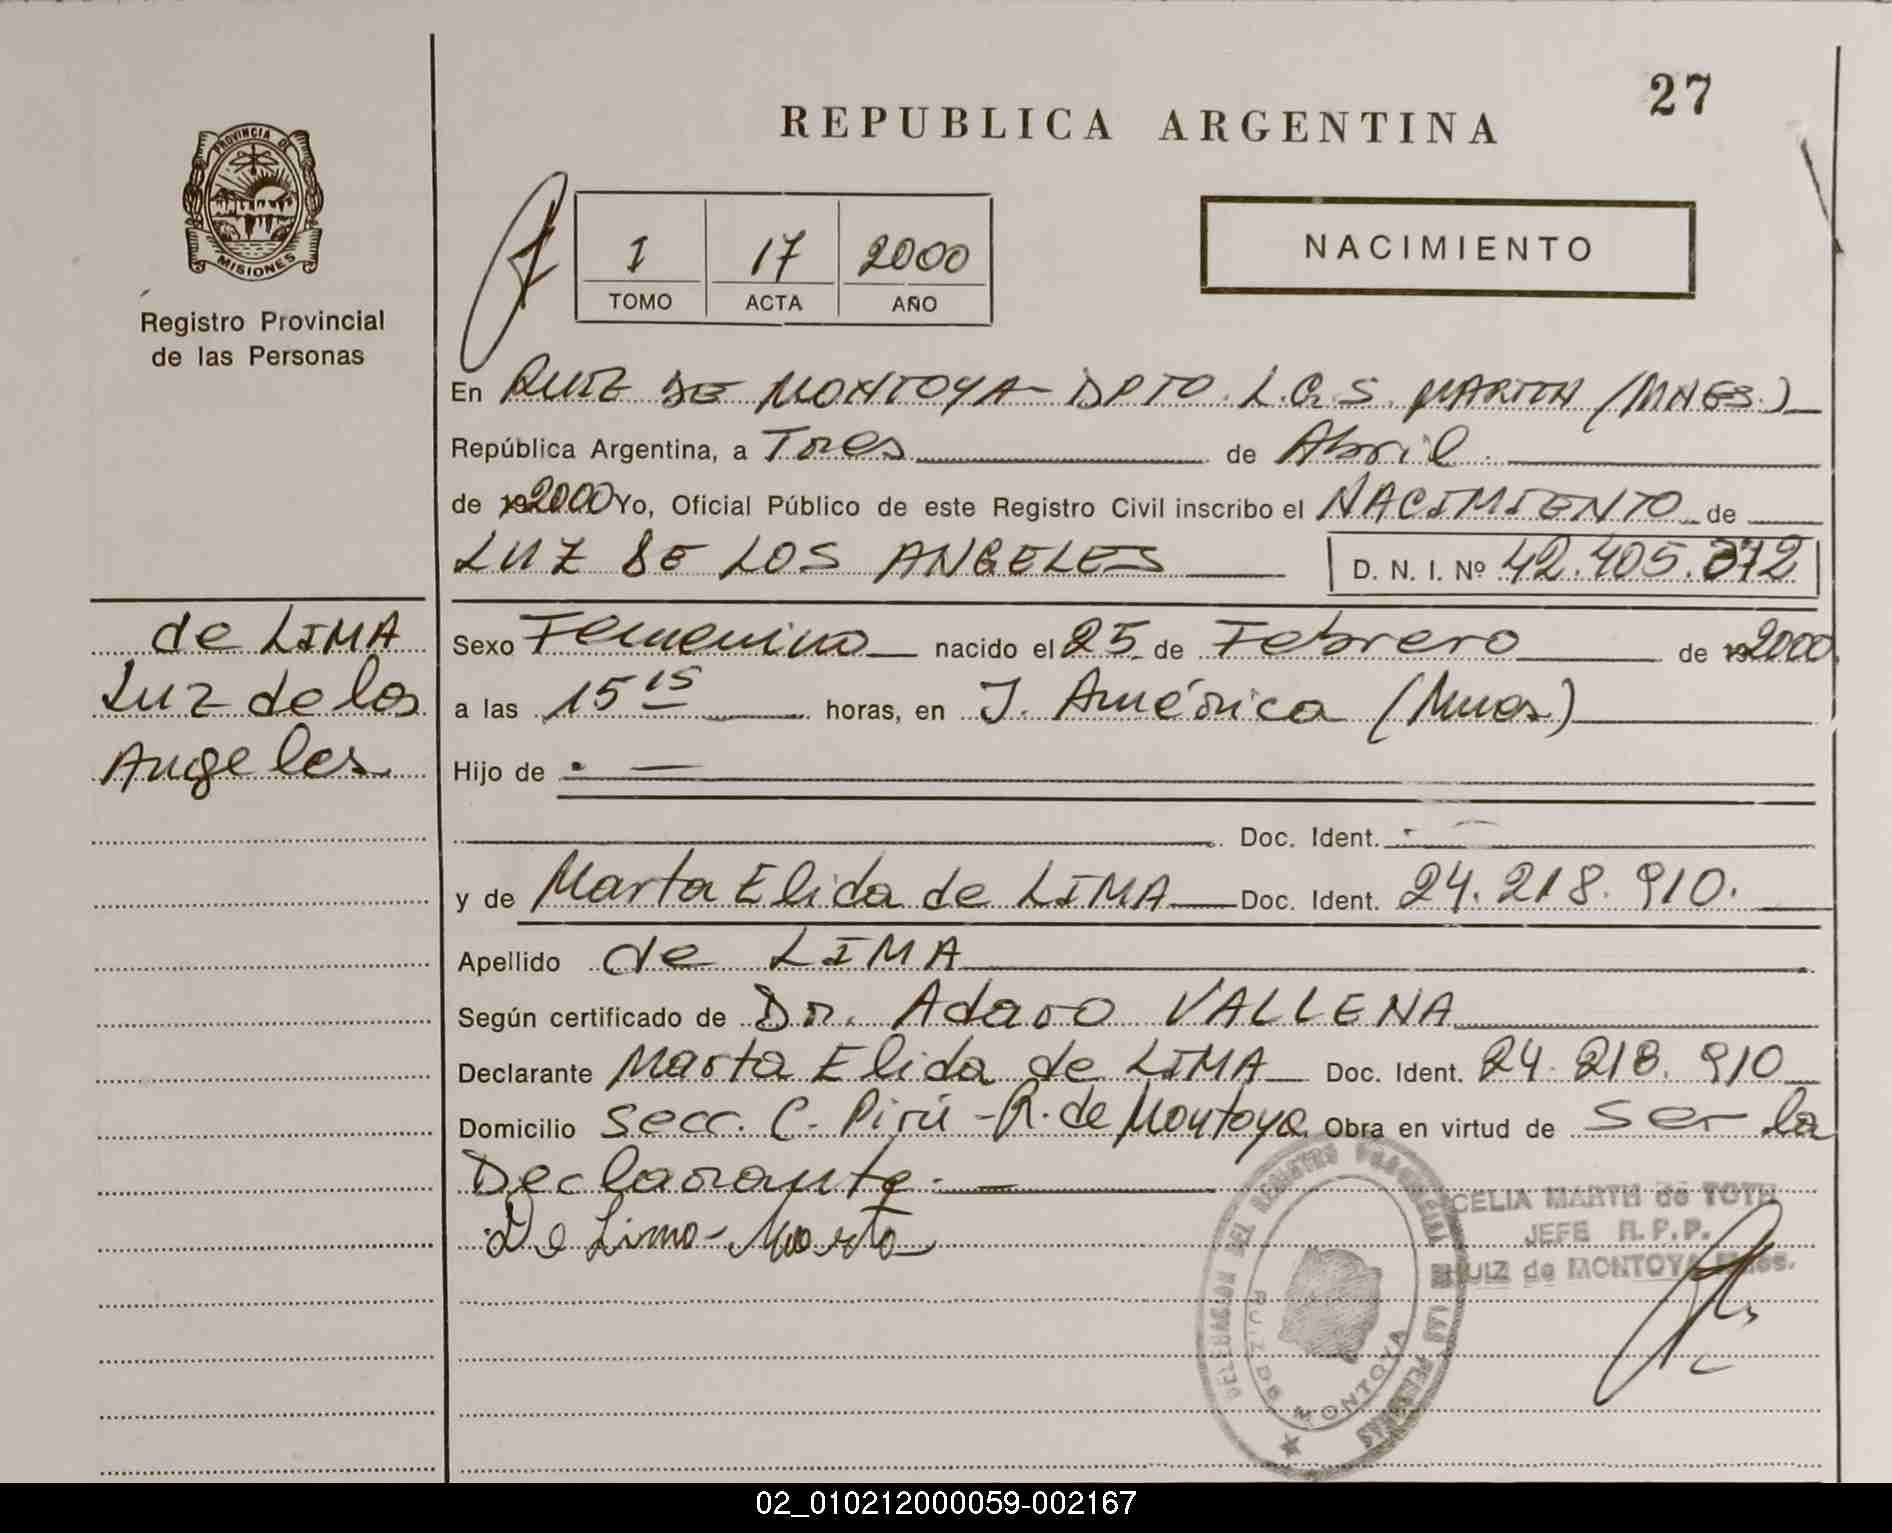 27
REPUBLICA ARGENTINA
PROVINCIA DE
MISIONES
Registro Provincial
de las Personas
1 17 2000
TOMO ACTA AÑO
NACIMIENTO
En RUIZ DE MONTOYA - DPTO. L. G. S. MARTIN (MNES.)
República Argentina, a Tres de Abril
de 2000 Yo, Oficial Público de este Registro Civil inscribo el NACIMIENTO de
LUZ DE LOS ANGELES D. N. I. Nº 42.405.372
de LIMA
Luz de los
Angeles
Sexo Femenino nacido el 25 de Febrero de 2000
a las 15 15 horas, en J. América (Mnes)
Hijo de -
Doc. Ident. -
y de Marta Elida de LIMA Doc. Ident. 24.218.910.
Apellido de LIMA
Según certificado de Dr. Adaro VALLENA
Declarante Marta Elida de LIMA Doc. Ident. 24.218.910
Domicilio Secc. C. Pirú - R. de Montoya Obra en virtud de ser la
Declarante. -
De Lima - Marta
CELIA MARTH de TOTH
JEFE R.P.P.
RUIZ de MONTOYA Mnes.
DELEGACION DEL REGISTRO PROVINCIAL DE LAS PERSONAS
RUIZ DE MONTOYA
02_010212000059-002167